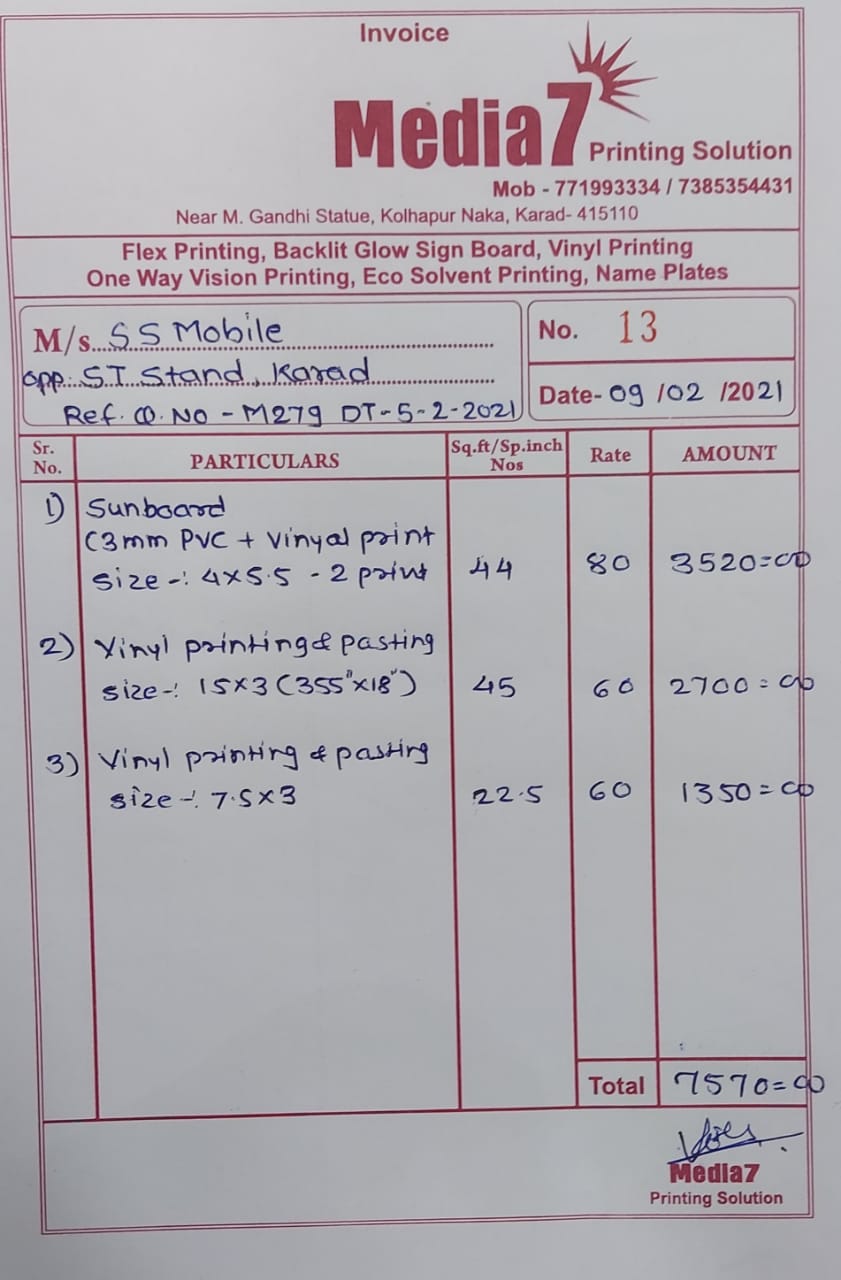 Invoice
Media7 Printing Solution
Mob - 771993334 / 7385354431
Near M. Gandhi Statue, Kolhapur Naka, Karad- 415110
Flex Printing, Backlit Glow Sign Board, Vinyl Printing
One Way Vision Printing, Eco Solvent Printing, Name Plates
M/s. SS Mobile
opp. ST Stand, Karad
Ref. Q. NO - M279 DT-5-2-2021
No. 13
Date- 09/02/2021
Sr. No. PARTICULARS Sq.ft/Sp.inch Nos Rate AMOUNT
1) Sunboard
(3mm PVC + Vinyal print
size -: 4x5.5 - 2 print 44 80 3520=00
2) Vinyl printing & pasting
size -: 15x3 (355"x18") 45 60 2700=00
3) Vinyl printing & pasting
size -: 7.5x3 22.5 60 1350=00
Total 7570=00
Media7
Printing Solution